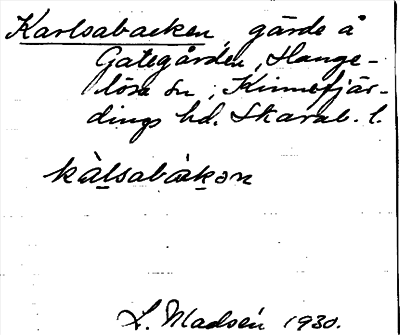 Karlsabacken, gärde å
Gategården, Hange-
lösa sn, Kinnefjär-
dings hd. Skarab. l.
kàlsabàkən
L. Madsén 1930.